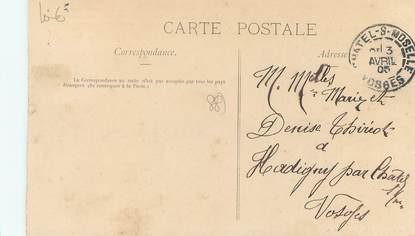 CARTE POSTALE
Correspondance.
Adresse
La Correspondance au recto n'est pas acceptée par tous les pays
étrangers. (Se renseigner à la Poste.)
CHATEL-S-MOSELLE
3
AVRIL
05
VOSGES
89
M. Melles
Marie et
Denise Thiriot
à
Hadigny par Châtel
s/m
Vosges